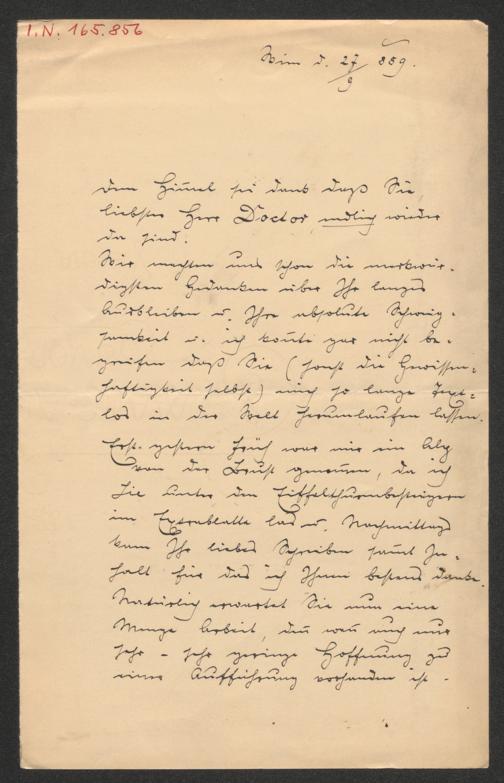 I.N. 165.856
Wien d. 27/9 889.
Dem Himel sei dank daß Sie
liebster Herr Doctor endlich wieder
da sind.
Wir machten uns schon die merkwür-
digsten Gedanken über Ihr langes
Ausbleiben u. Ihre absolute Schweig-
samkeit u. ich konte gar nicht be-
greifen daß Sie (sonst die Gewissen-
haftigkeit selbst) mich so lange Text-
los in der Welt herumlaufen lassen.
Erst gestern Früh war mir ein Alp
von der Brust genomen, da ich
Sie unter den Eiffelthurmbesteigern
im Extrablatte las u. Nachmittags
kam Ihr liebes Schreiben samt In-
halt für das ich Ihnen bestens danke.
Natürlich erwartet Sie nun eine
Menge Arbeit, den wen auch nur
sehr - sehr geringe Hoffnung zu
einer Aufführung vorhanden ist -